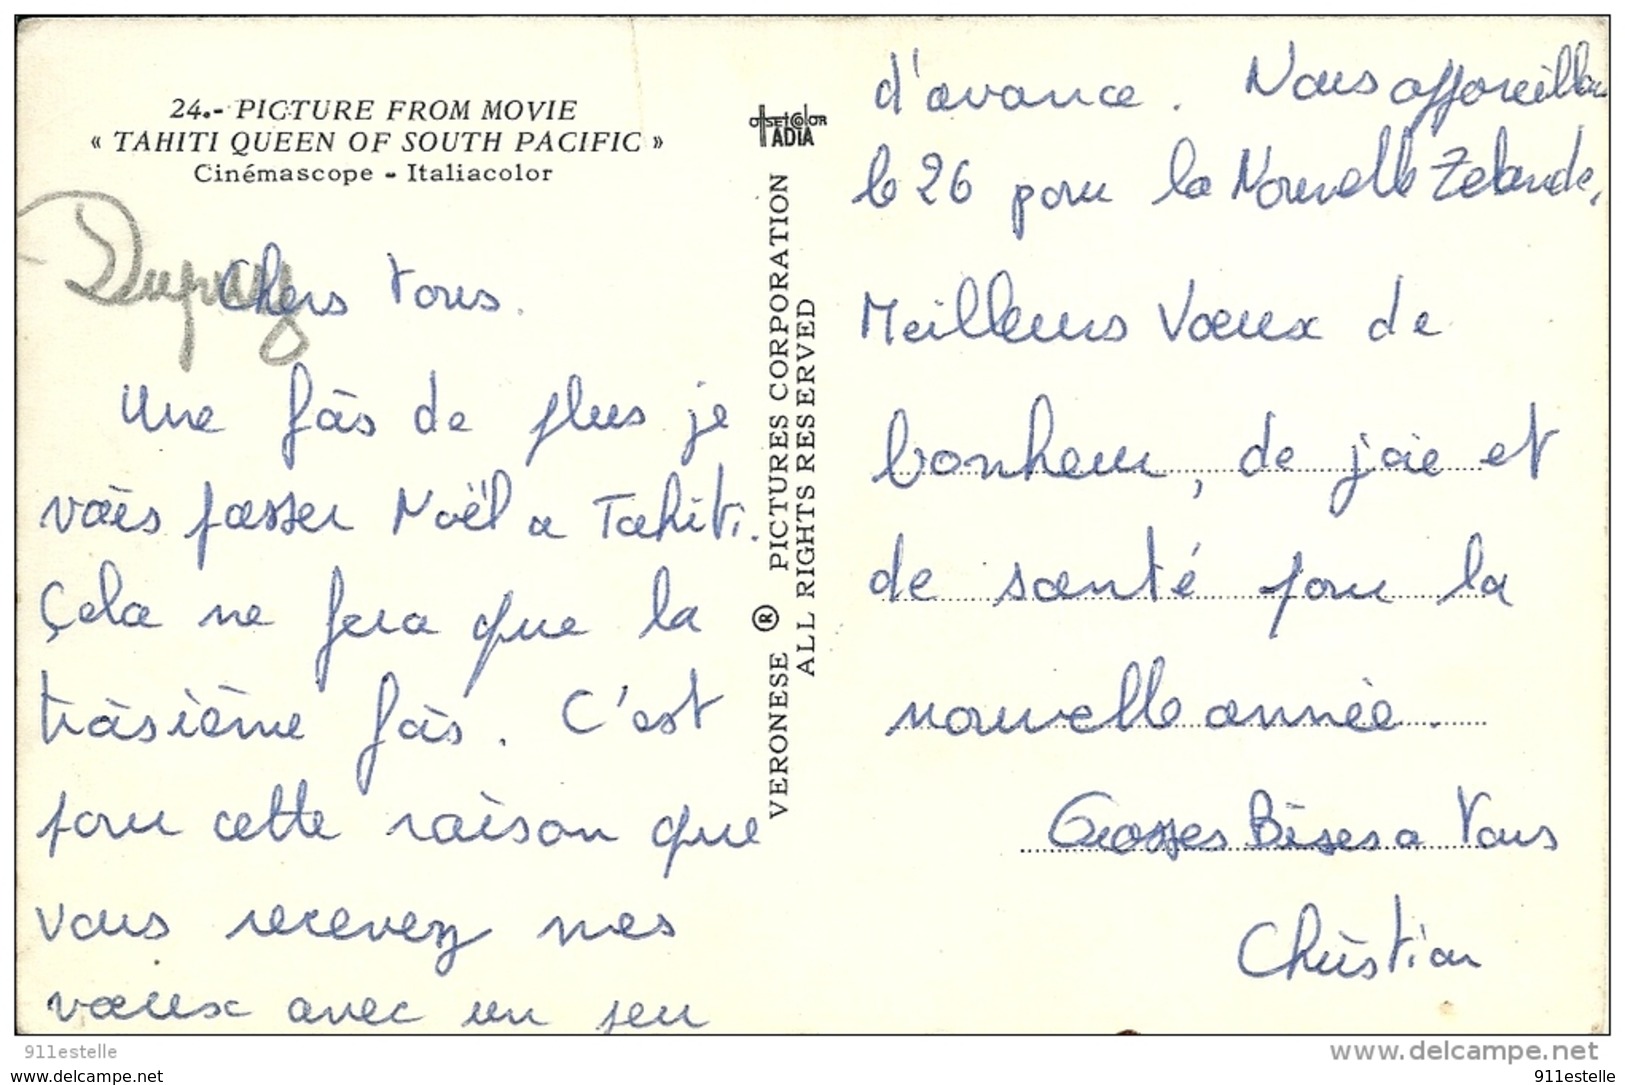 24.- PICTURE FROM MOVIE
« TAHITI QUEEN OF SOUTH PACIFIC »
Cinémascope - Italiacolor
Chers Vous.
Une fois de plus je
vais passer Noël a Tahiti.
Çela ne fera que la
troisième fois. C'est
pour cette raison que
vous recevez mes
vœux avec un peu
OffsetColor
ADIA
VERONESE ® PICTURES CORPORATION
ALL RIGHTS RESERVED
d'avance. Nous appareillons
le 26 pour la Nouvelle Zelande.
Meilleurs Vœux de
bonheur, de joie et
de santé pour la
nouvelle année.
Grosses Bises a Vous
Christian
911estelle
www.delcampe.net
911estelle
911estelle